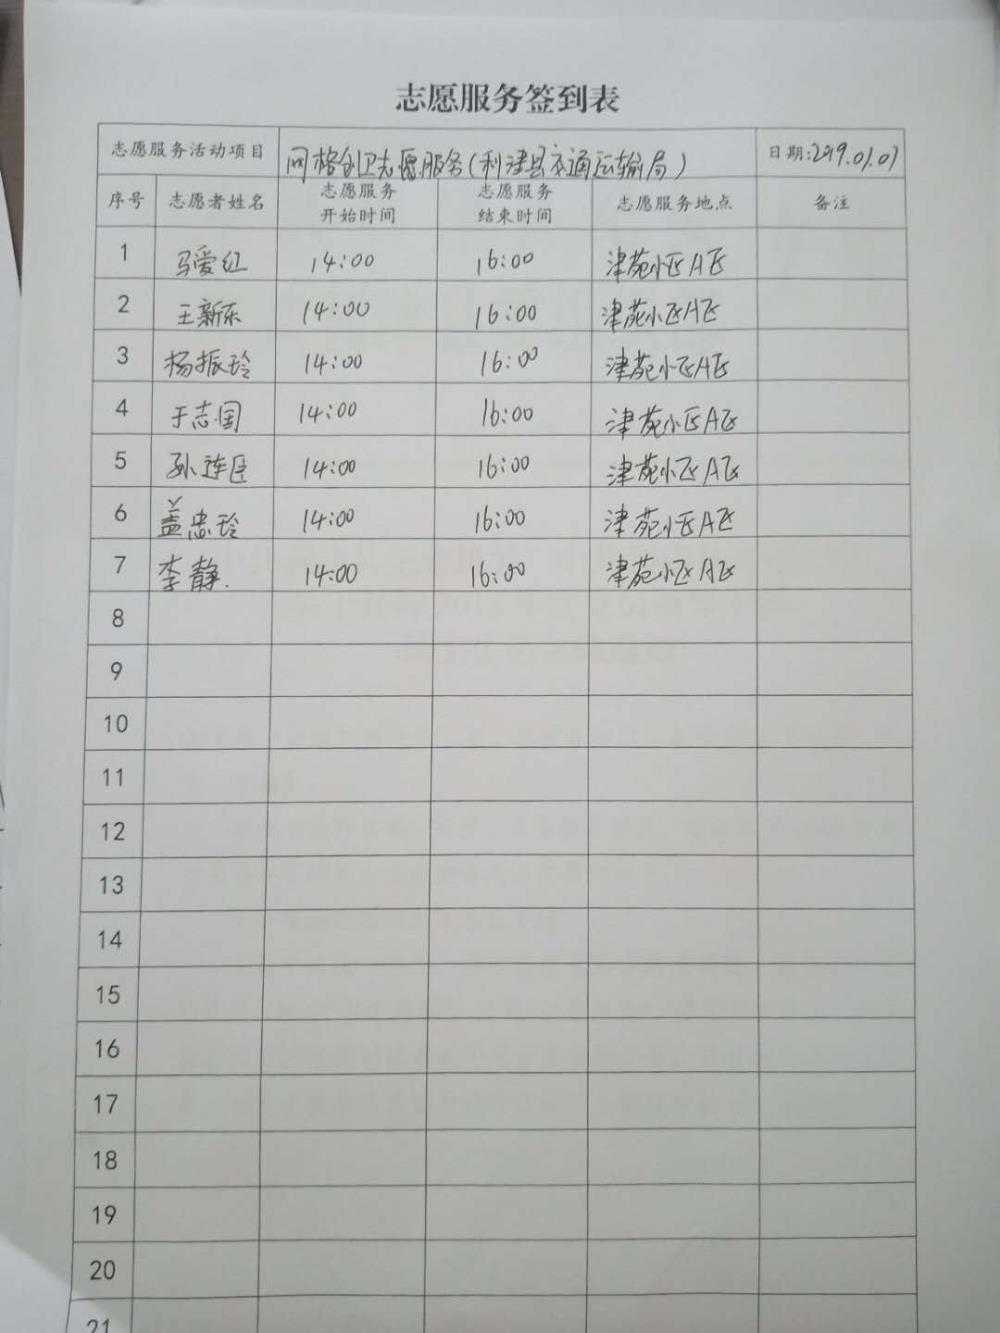 志愿服务签到表
志愿服务活动项目 网格创卫志愿服务(利津县交通运输局) 日期:2019.01.07
序号 志愿者姓名 志愿服务开始时间 志愿服务结束时间 志愿服务地点 备注
1 马爱红 14:00 16:00 津苑小区A区
2 王新东 14:00 16:00 津苑小区A区
3 杨振玲 14:00 16:00 津苑小区A区
4 于志国 14:00 16:00 津苑小区A区
5 孙连臣 14:00 16:00 津苑小区A区
6 盖忠玲 14:00 16:00 津苑小区A区
7 李静. 14:00 16:00 津苑小区A区
8
9
10
11
12
13
14
15
16
17
18
19
20
21